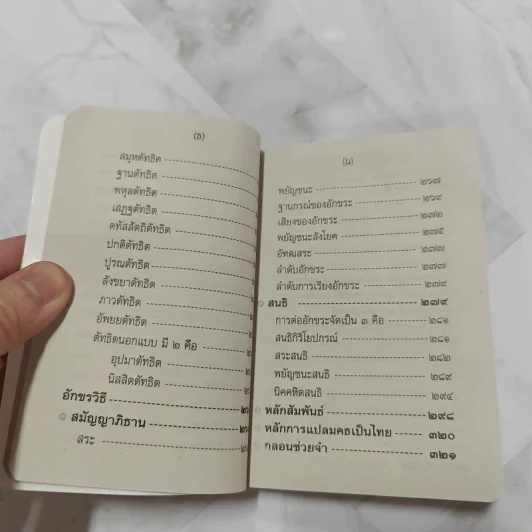 (ธ)
สมุหตัทธิต
ฐานตัทธิต
พหุลตัทธิต
เสฏฐตัทธิต
ตทัสสัตถิตัทธิต
ปกติตัทธิต
ปูรณตัทธิต
สังขยาตัทธิต
ภาวตัทธิต
อัพยยตัทธิต
ตัทธิตนอกแบบ มี ๒ คือ
อุปมาตัทธิต
นิสสิตตัทธิต
อักขรวิธี
สมัญญาภิธาน
สระ
(น)
พยัญชนะ ๒๖๗
ฐานกรณ์ของอักขระ ๒๖๙
เสียงของอักขระ ๒๗๒
พยัญชนะสังโยค ๒๗๕
อัฑฒสระ ๒๗๗
ลำดับอักขระ ๒๗๗
ลำดับการเรียงอักขระ ๒๗๙
สนธิ ๒๗๙
การต่ออักขระจัดเป็น ๓ คือ ๒๘๑
สนธิกิริโยปกรณ์ ๒๘๑
สระสนธิ ๒๘๒
พยัญชนะสนธิ ๒๘๙
นิคคหิตสนธิ ๒๙๔
หลักสัมพันธ์ ๒๙๘
หลักการแปลมคธเป็นไทย ๓๒๐
กลอนช่วยจำ ๓๒๑